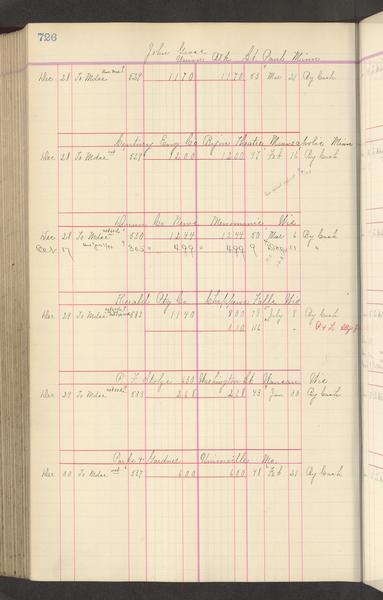 726
John Gross
Union Blk St Paul Minn
Dec 28 To Mdse 528 11 70 11 70 53 Mar 21 By Cash
Century Eng Co Bijou Theatre Minneapolis Minn
Dec 28 To Mdse 529 12 00 12 00 Feb 16 By Cash
Dunn Co News Menomonie Wis
Dec 28 To Mdse 530 12 44 12 44 50 Mar 6 By Cash
Oct 17 305 4 99 4 99 9 11 "
Herald Ptg Co Chippewa Falls Wis
Dec 29 To Mdse 532 11 40 8 00 73 July 8 By Cash
116
P. F. Stolze 630 Washington St Wausau Wis
Dec 29 To Mdse 533 2 68 2 68 43 Jan 30 By Cash
Parke & Gardner Unionville Mo.
Dec 30 To Mdse 537 6 00 6 00 48 Feb 21 By Cash